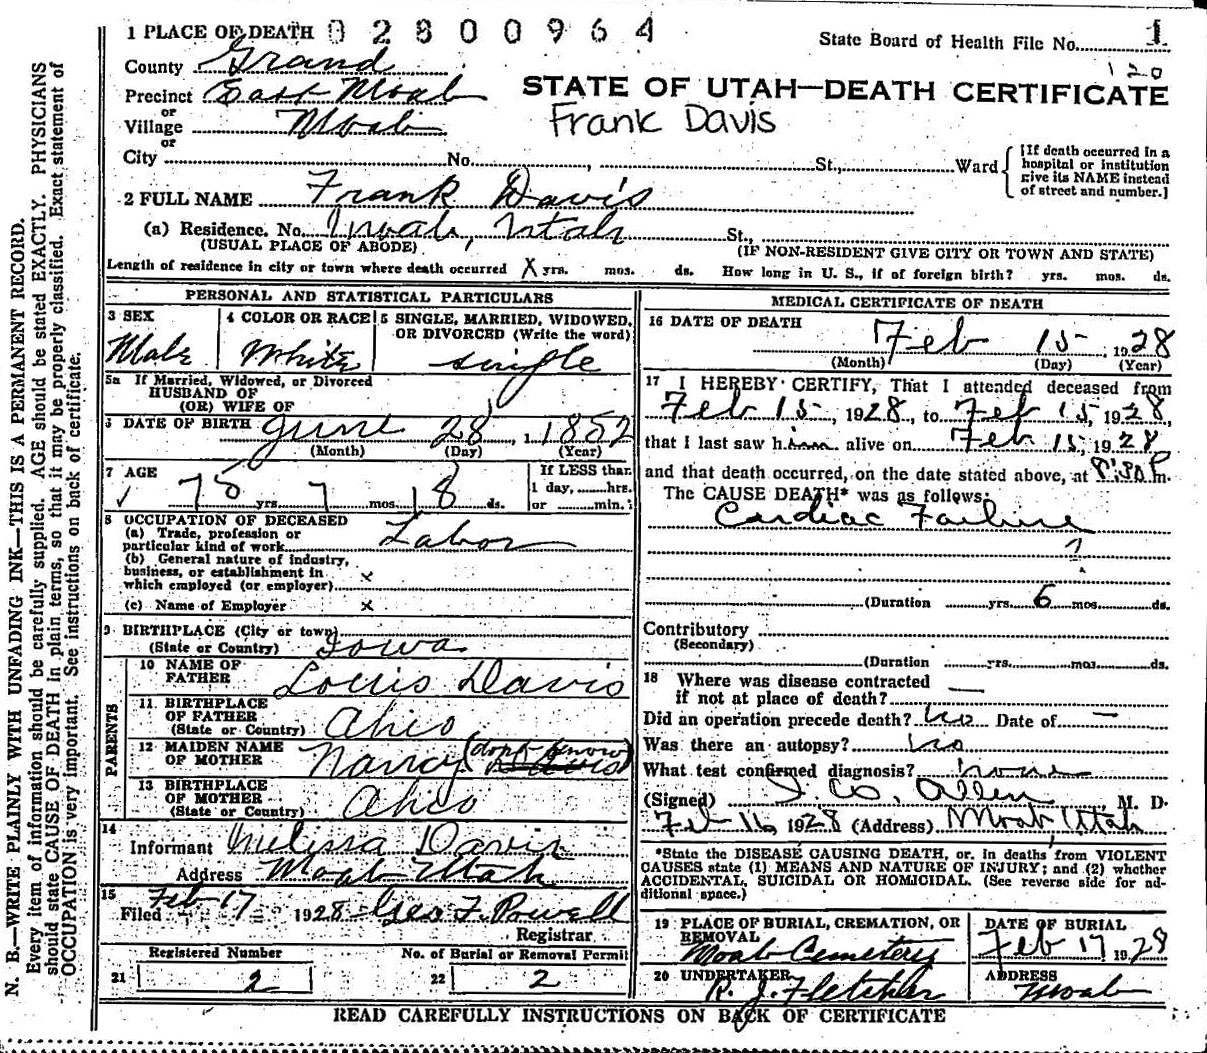 1 PLACE OF DEATH 02800964
State Board of Health File No. 1
120
County Grand
Precinct East Moab
or
Village Moab
or
City No. , St., Ward
[If death occurred in a hospital or institution give its NAME instead of street and number.]
STATE OF UTAH—DEATH CERTIFICATE
Frank Davis
2 FULL NAME Frank Davis
(a) Residence. No. Moab, Utah St.,
(USUAL PLACE OF ABODE) (IF NON-RESIDENT GIVE CITY OR TOWN AND STATE)
Length of residence in city or town where death occurred X yrs. mos. ds. How long in U. S., if of foreign birth? yrs. mos. ds.
PERSONAL AND STATISTICAL PARTICULARS
3 SEX
Male
4 COLOR OR RACE
White
5 SINGLE, MARRIED, WIDOWED, OR DIVORCED (Write the word)
single
5a If Married, Widowed, or Divorced
HUSBAND OF
(OR) WIFE OF
6 DATE OF BIRTH June 28, 1 1852
(Month) (Day) (Year)
7 AGE
75 yrs. 7 mos. 18 ds.
If LESS than
1 day, hrs.
or min.
8 OCCUPATION OF DECEASED
(a) Trade, profession or
particular kind of work Labor
(b) General nature of industry,
business, or establishment in
which employed (or employer) x
(c) Name of Employer x
9 BIRTHPLACE (City or town)
(State or Country) Iowa
PARENTS
10 NAME OF
FATHER Louis Davis
11 BIRTHPLACE
OF FATHER
(State or Country) Ahio
12 MAIDEN NAME
OF MOTHER Nancy (dont know) Davis
13 BIRTHPLACE
OF MOTHER
(State or Country) Ahio
14
Informant Melissa Davis
Address Moab Utah
15
Filed Feb 17 1928 Geo F. Powell
Registrar
Registered Number
21 2
No. of Burial or Removal Permit
22 2
MEDICAL CERTIFICATE OF DEATH
16 DATE OF DEATH
Feb 15, 1928
(Month) (Day) (Year)
17 I HEREBY CERTIFY, That I attended deceased from
Feb 15, 1928, to Feb 15, 1928,
that I last saw him alive on Feb 15, 1928
and that death occurred, on the date stated above, at 8:30 P m.
The CAUSE DEATH* was as follows:
Cardiac Failure
?
(Duration yrs. 6 mos. ds.
Contributory
(Secondary)
(Duration yrs. mos. ds.
18 Where was disease contracted
if not at place of death? —
Did an operation precede death? no Date of —
Was there an autopsy? no
What test confirmed diagnosis? none
(Signed) I. W. Allen, M. D.
Feb 16, 1928 (Address) Moab, Utah
*State the DISEASE CAUSING DEATH, or, in deaths from VIOLENT
CAUSES state (1) MEANS AND NATURE OF INJURY; and (2) whether
ACCIDENTAL, SUICIDAL OR HOMICIDAL. (See reverse side for ad-
ditional space.)
19 PLACE OF BURIAL, CREMATION, OR
REMOVAL
Moab Cemetery
DATE OF BURIAL
Feb 17 1928
20 UNDERTAKER
R. J. Fletcher
ADDRESS
Moab
READ CAREFULLY INSTRUCTIONS ON BACK OF CERTIFICATE
N. B.—WRITE PLAINLY WITH UNFADING INK—THIS IS A PERMANENT RECORD.
Every item of information should be carefully supplied. AGE should be stated EXACTLY. PHYSICIANS
should state CAUSE OF DEATH in plain terms, so that it may be properly classified. Exact statement of
OCCUPATION is very important. See instructions on back of certificate.